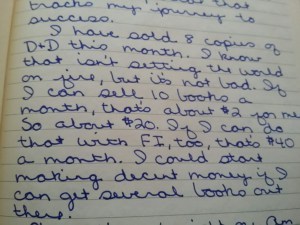 tracks my journey to
success.
I have sold 8 copies of
D&D this month. I know
that isn't setting the world
on fire, but it's not bad. If
I can sell 10 books a
month, that's about $2 for me.
So about $20. If I can do
that with FI, too, that's $40
a month. I could start
making decent money if I
can get several books out
there.